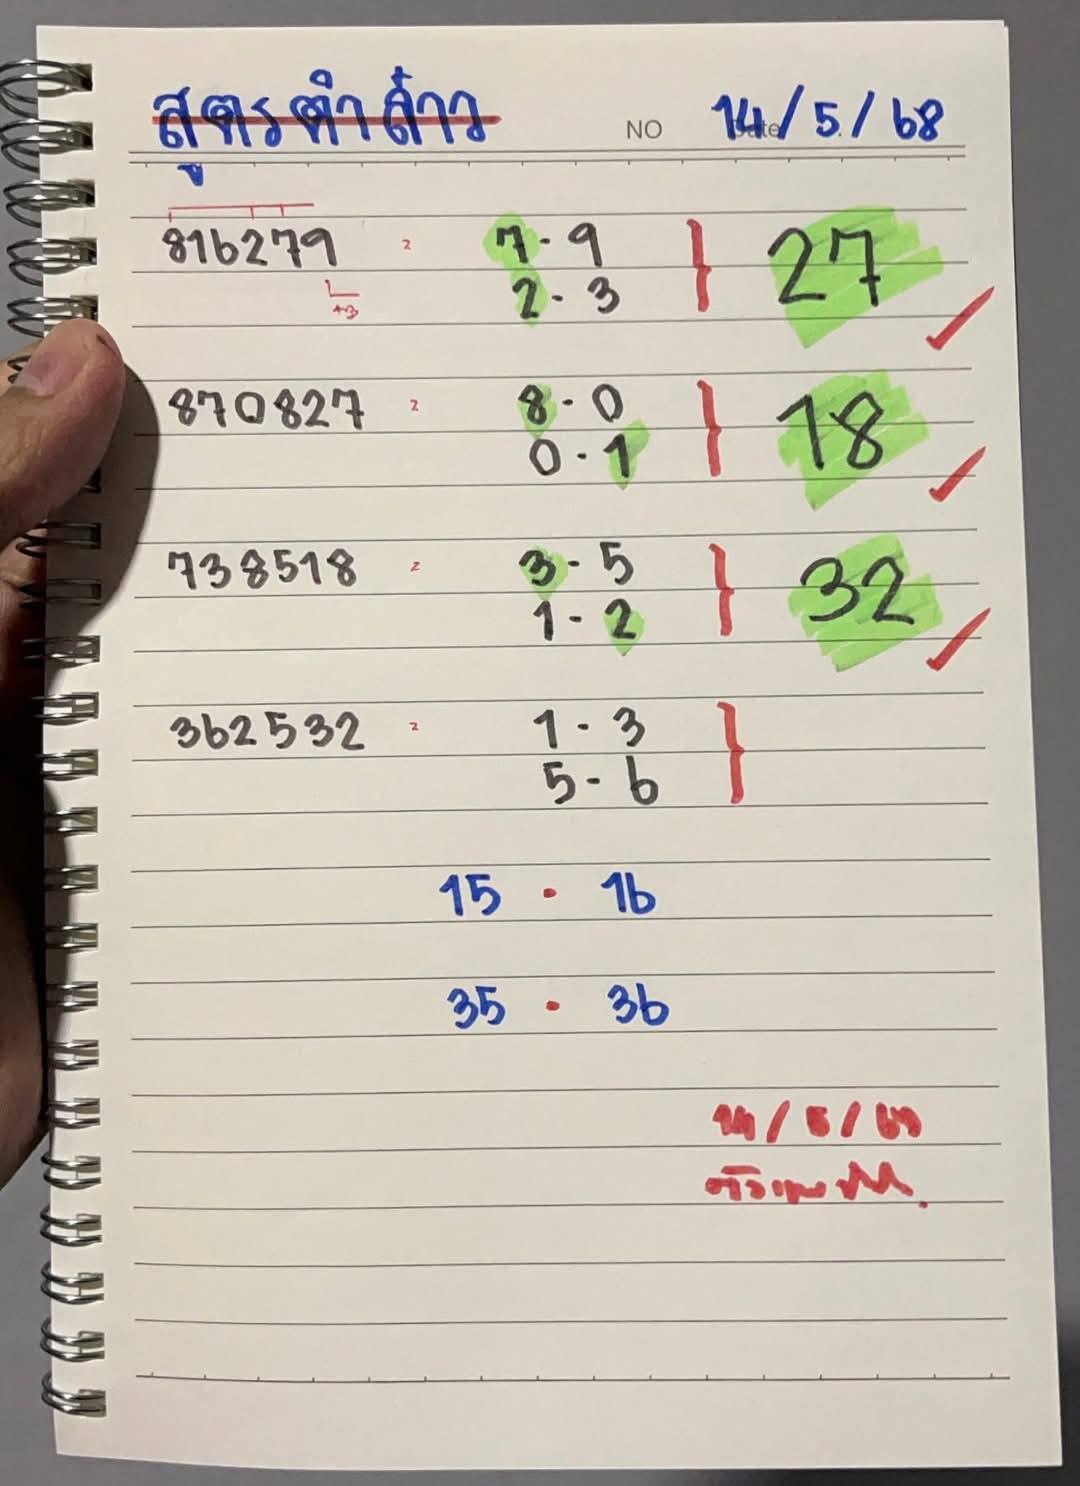 สูตรตำล๋าว NO Date 14/5/68
816279 = 7-9 27
+3 2-3
870827 = 8-0 18
0-1
738518 = 3-5 32
1-2
362532 = 1-3
5-6
15 . 16
35 . 36
14/5/68